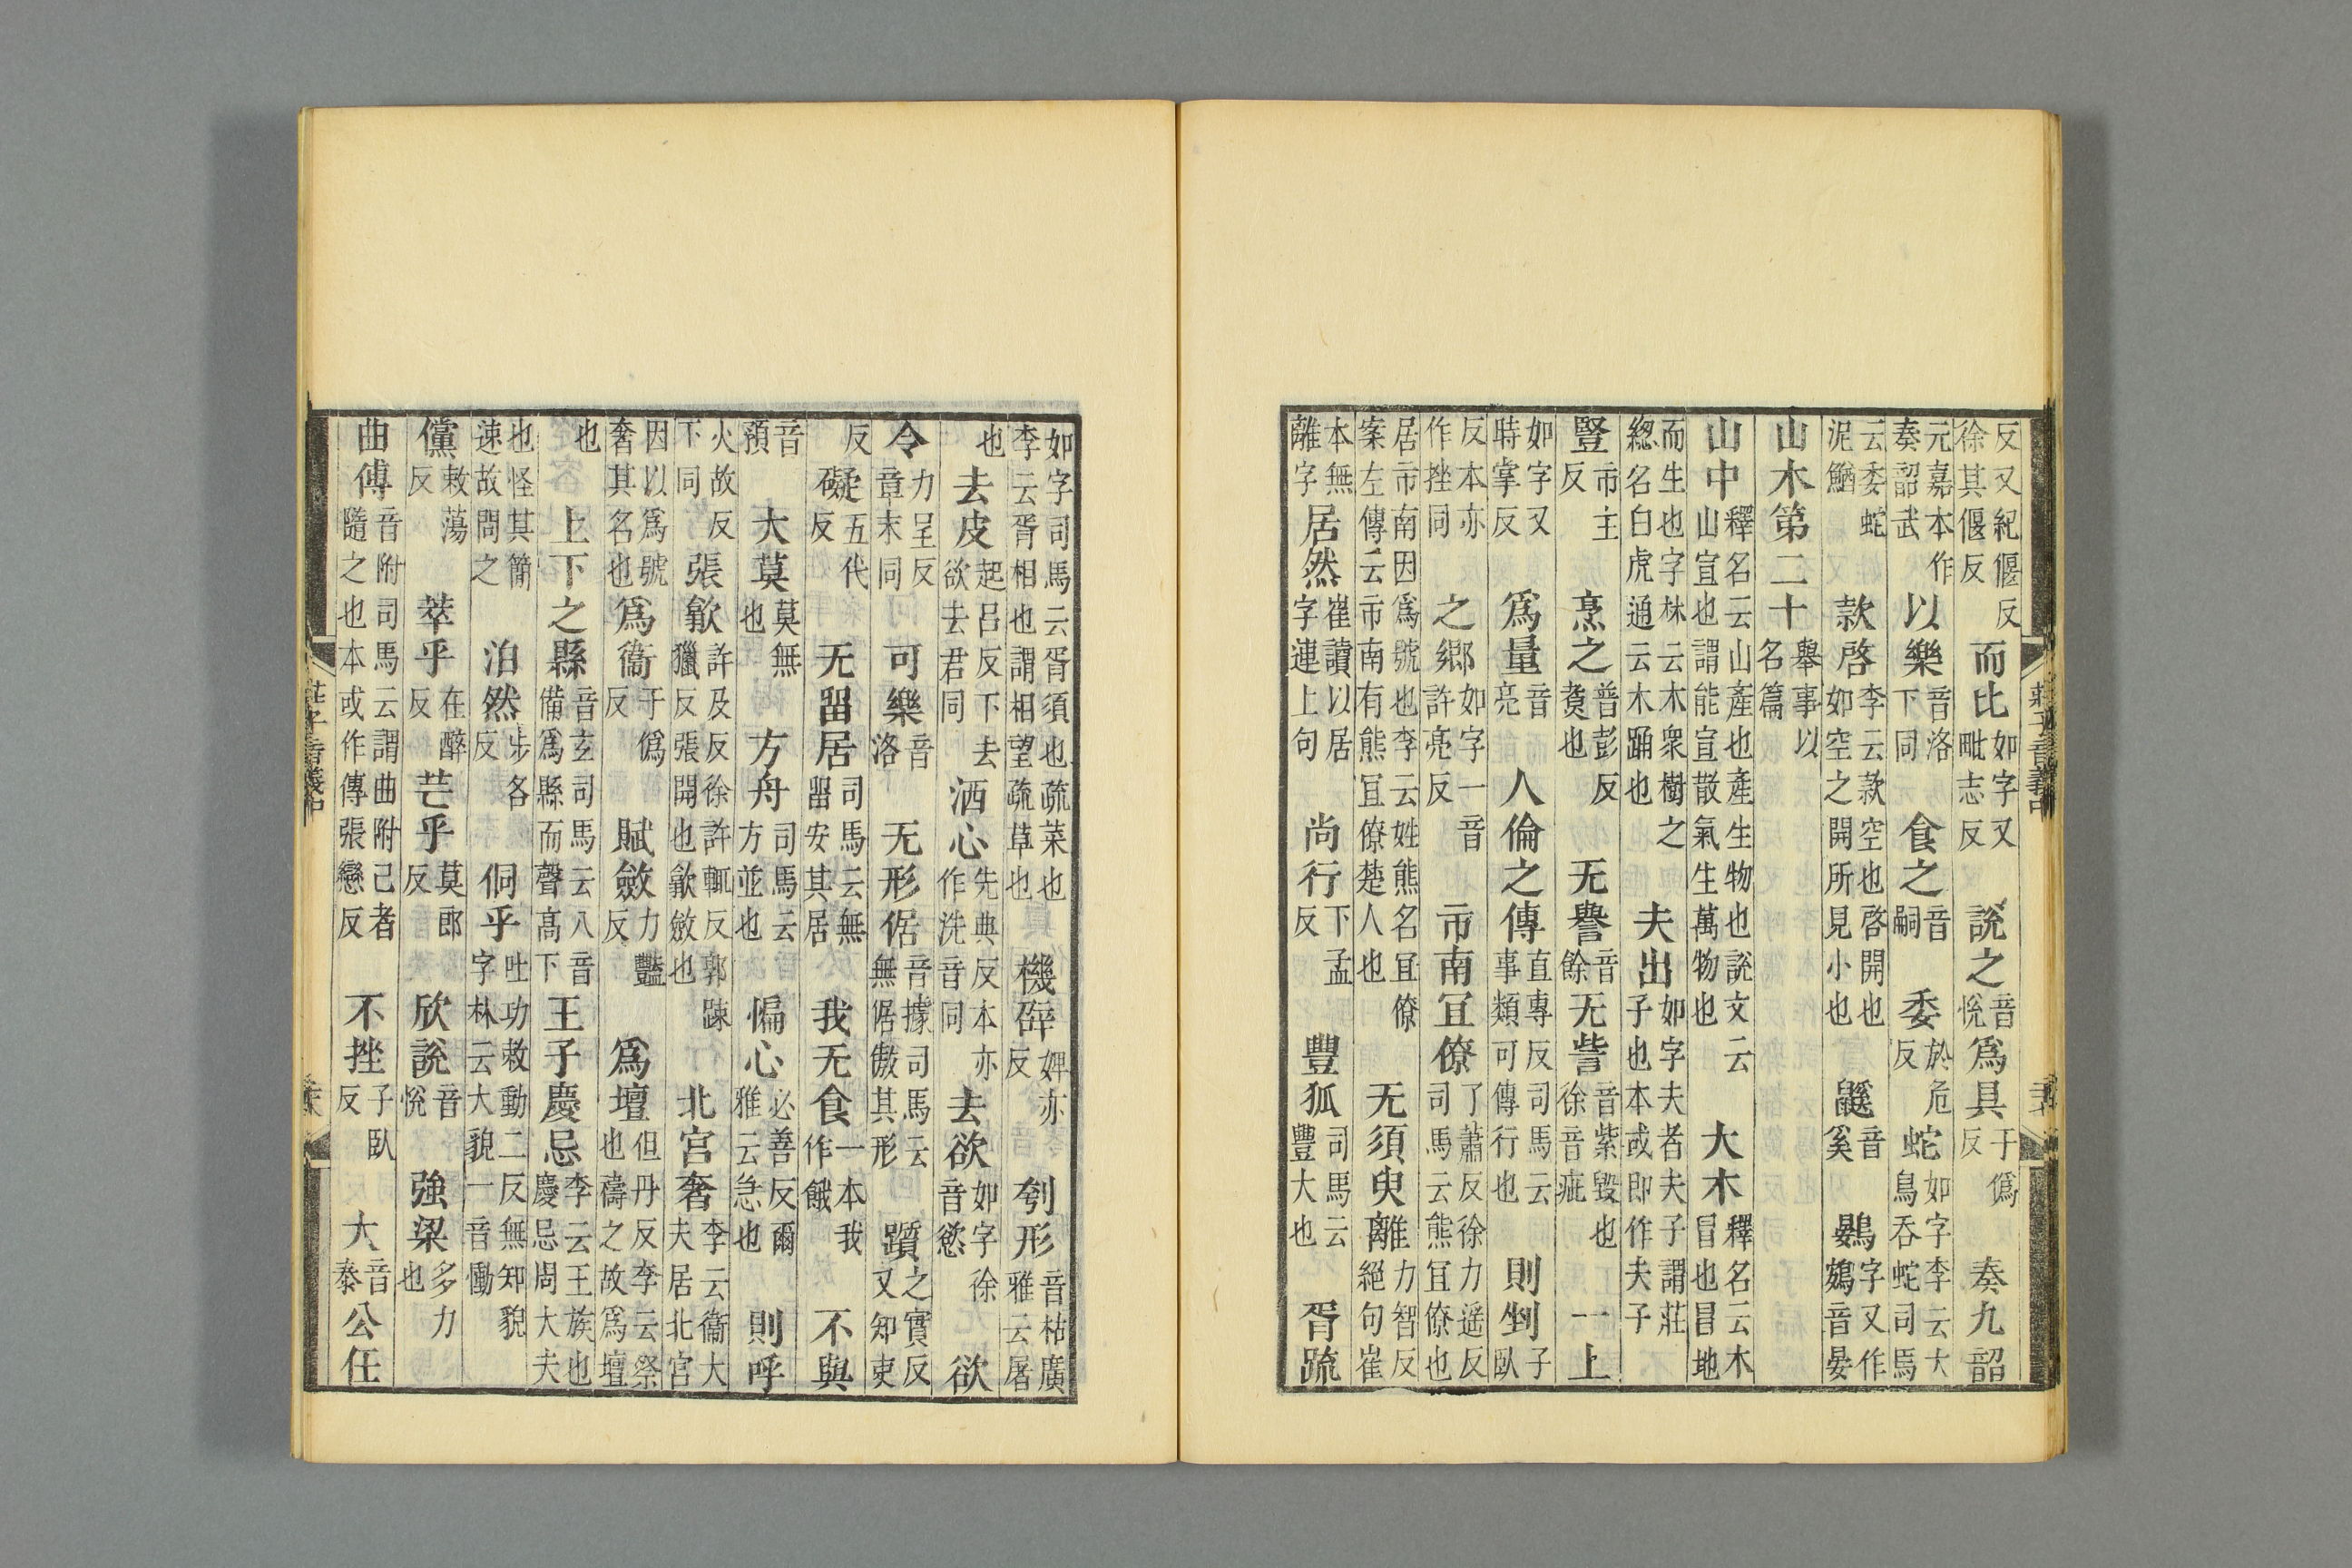 莊子音義中
反又紀偃反徐其偃反 而比如字又毗志反 說之音悅 爲具于僞反 奏九韶
元嘉本作奏韶武 以樂音洛下同 食之音嗣 委於危反 蛇如字李云大鳥吞蛇司馬
云委蛇泥鰌 款啓李云款空也啓開也如空之開所見小也 鼷音奚 鷃字又作鴳音晏
山木第二十舉事以名篇
山中釋名云山產也產生物也說文云山宣也謂能宣散氣生萬物也 大木釋名云木冒也冒地
而生也字林云木衆樹之緫名白虎通云木踊也 夫出如字夫者夫子謂莊子也本或即作夫子
豎市主反 烹之普彭反煑也 无譽音餘 无訾音紫毀也徐音疵 一上
如字又時掌反 爲量音亮 人倫之傳直專反司馬云事類可傳行也 則剉子臥
反本亦作挫同 之鄉如字一音許亮反 市南冝僚了蕭反徐力遥反司馬云熊冝僚也
居市南因爲號也李云姓熊名冝僚案左傳云市南有熊冝僚楚人也 无須臾離力智反絕句崔
本無離字 居然崔讀以居字連上句 尚行下孟反 豐狐司馬云豐大也 胥疏
如字司馬云胥須也疏菜也李云胥相也謂相望疏草也 機辟婢亦反 刳形音枯廣雅云屠
也 去皮起呂反下去欲去君同 洒心先典反本亦作洗音同 去欲如字徐音慾 欲
令力呈反章末同 可樂音洛 无形倨音據司馬云無倨傲其形 躓之實反又知吏
反 礙五代反 无畱居司馬云無畱安其居 我无食一本我作餓 不與
音預 大莫莫無也 方舟司馬云方並也 惼心必善反爾雅云急也 則呼
火故反下同 張歙許及反徐許輒反郭踈獵反張開也歙斂也 北宮奢李云衞大夫居北宮
因以爲號奢其名也 爲衞于僞反 賦斂力豔反 爲壇但丹反李云祭也禱之故爲壇
也 上下之縣音玄司馬云八音備爲縣而聲高下 王子慶忌李云王族也慶忌周大夫
也怪其簡速故問之 泊然步各反 侗乎吐功敕動二反無知貌字林云大貌一音慟
儻敕蕩反 萃乎在醉反 芒乎莫郎反 欣說音悅 強梁多力也
曲傅音附司馬云謂曲附己者隨之也本或作傳張戀反 不挫子臥反 大音泰 公任
莊子音義中